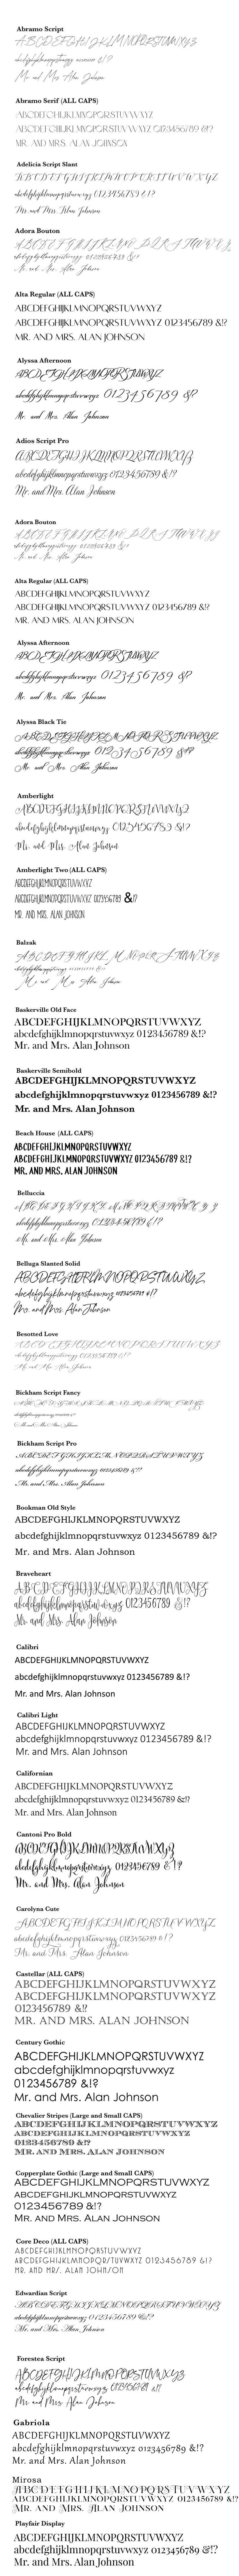 Abramo Script
ABCDEFGHIJKLMNOPQRSTUVWXYZ
abcdefghijklmnopqrstuvwxyz 0123456789 &!?
Mr. and Mrs. Alan Johnson
Abramo Serif (ALL CAPS)
ABCDEFGHIJKLMNOPQRSTUVWXYZ
ABCDEFGHIJKLMNOPQRSTUVWXYZ 0123456789 &!?
MR. AND MRS. ALAN JOHNSON
Adelicia Script Slant
ABCDEFGHIJKLMNOPQRSTUVWXYZ
abcdefghijklmnopqrstuvwxyz 0123456789 &!?
Mr. and Mrs. Alan Johnson
Adora Bouton
ABCDEFGHIJKLMNOPQRSTUVWXYZ
abcdefghijklmnopqrstuvwxyz 0123456789 &!?
Mr. and Mrs. Alan Johnson
Alta Regular (ALL CAPS)
ABCDEFGHIJKLMNOPQRSTUVWXYZ
ABCDEFGHIJKLMNOPQRSTUVWXYZ 0123456789 &!?
MR. AND MRS. ALAN JOHNSON
Alyssa Afternoon
ABCDEFGHIJKLMNOPQRSTUVWXYZ
abcdefghijklmnopqrstuvwxyz 0123456789 &?
Mr. and Mrs. Alan Johnson
Adios Script Pro
ABCDEFGHIJKLMNOPQRSTUVWXYZ
abcdefghijklmnopqrstuvwxyz 0123456789 &!?
Mr. and Mrs. Alan Johnson
Adora Bouton
ABCDEFGHIJKLMNOPQRSTUVWXYZ
abcdefghijklmnopqrstuvwxyz 0123456789 &!?
Mr. and Mrs. Alan Johnson
Alta Regular (ALL CAPS)
ABCDEFGHIJKLMNOPQRSTUVWXYZ
ABCDEFGHIJKLMNOPQRSTUVWXYZ 0123456789 &!?
MR. AND MRS. ALAN JOHNSON
Alyssa Afternoon
ABCDEFGHIJKLMNOPQRSTUVWXYZ
abcdefghijklmnopqrstuvwxyz 0123456789 &?
Mr. and Mrs. Alan Johnson
Alyssa Black Tie
ABCDEFGHIJKLMNOPQRSTUVWXYZ
abcdefghijklmnopqrstuvwxyz 0123456789 &!?
Mr. and Mrs. Alan Johnson
Amberlight
ABCDEFGHIJKLMNOPQRSTUVWXYZ
abcdefghijklmnopqrstuvwxyz 0123456789 &!?
Mr. and Mrs. Alan Johnson
Amberlight Two (ALL CAPS)
ABCDEFGHIJKLMNOPQRSTUVWXYZ
ABCDEFGHIJKLMNOPQRSTUVWXYZ 0123456789 & !?
MR. AND MRS. ALAN JOHNSON
Balzak
ABCDEFGHIJKLMNOPQRSTUVWXYZ
abcdefghijklmnopqrstuvwxyz 0123456789 &!?
Mr. and Mrs. Alan Johnson
Baskerville Old Face
ABCDEFGHIJKLMNOPQRSTUVWXYZ
abcdefghijklmnopqrstuvwxyz 0123456789 &!?
Mr. and Mrs. Alan Johnson
Baskerville Semibold
ABCDEFGHIJKLMNOPQRSTUVWXYZ
abcdefghijklmnopqrstuvwxyz 0123456789 &!?
Mr. and Mrs. Alan Johnson
Beach House (ALL CAPS)
ABCDEFGHIJKLMNOPQRSTUVWXYZ
ABCDEFGHIJKLMNOPQRSTUVWXYZ 0123456789 &!?
MR. AND MRS. ALAN JOHNSON
Belluccia
ABCDEFGHIJKLMNOPQRSTUVWXYZ
abcdefghijklmnopqrstuvwxyz 0123456789 &!?
Mr. and Mrs. Alan Johnson
Belluga Slanted Solid
ABCDEFGHIJKLMNOPQRSTUVWXYZ
abcdefghijklmnopqrstuvwxyz 0123456789 &!?
Mr. and Mrs. Alan Johnson
Besotted Love
ABCDEFGHIJKLMNOPQRSTUVWXYZ
abcdefghijklmnopqrstuvwxyz 0123456789 &!?
Mr. and Mrs. Alan Johnson
Bickham Script Fancy
ABCDEFGHIJKLMNOPQRSTUVWXYZ
abcdefghijklmnopqrstuvwxyz 0123456789 &!?
Mr. and Mrs. Alan Johnson
Bickham Script Pro
ABCDEFGHIJKLMNOPQRSTUVWXYZ
abcdefghijklmnopqrstuvwxyz 0123456789 &!?
Mr. and Mrs. Alan Johnson
Bookman Old Style
ABCDEFGHIJKLMNOPQRSTUVWXYZ
abcdefghijklmnopqrstuvwxyz 0123456789 &!?
Mr. and Mrs. Alan Johnson
Braveheart
ABCDEFGHIJKLMNOPQRSTUVWXYZ
abcdefghijklmnopqrstuvwxyz 0123456789 &!?
Mr. and Mrs. Alan Johnson
Calibri
ABCDEFGHIJKLMNOPQRSTUVWXYZ
abcdefghijklmnopqrstuvwxyz 0123456789 &!?
Mr. and Mrs. Alan Johnson
Calibri Light
ABCDEFGHIJKLMNOPQRSTUVWXYZ
abcdefghijklmnopqrstuvwxyz 0123456789 &!?
Mr. and Mrs. Alan Johnson
Californian
ABCDEFGHIJKLMNOPQRSTUVWXYZ
abcdefghijklmnopqrstuvwxyz 0123456789 &!?
Mr. and Mrs. Alan Johnson
Cantoni Pro Bold
ABCDEFGHIJKLMNOPQRSTUVWXYZ
abcdefghijklmnopqrstuvwxyz 0123456789 &!?
Mr. and Mrs. Alan Johnson
Carolyna Cute
ABCDEFGHIJKLMNOPQRSTUVWXYZ
abcdefghijklmnopqrstuvwxyz 0123456789 &!?
Mr. and Mrs. Alan Johnson
Castellar (ALL CAPS)
ABCDEFGHIJKLMNOPQRSTUVWXYZ
ABCDEFGHIJKLMNOPQRSTUVWXYZ
0123456789 &!?
MR. AND MRS. ALAN JOHNSON
Century Gothic
ABCDEFGHIJKLMNOPQRSTUVWXYZ
abcdefghijklmnopqrstuvwxyz
0123456789 &!?
Mr. and Mrs. Alan Johnson
Chevalier Stripes (Large and Small CAPS)
ABCDEFGHIJKLMNOPQRSTUVWXYZ
ABCDEFGHIJKLMNOPQRSTUVWXYZ
0123456789 &!?
MR. AND MRS. ALAN JOHNSON
Copperplate Gothic (Large and Small CAPS)
ABCDEFGHIJKLMNOPQRSTUVWXYZ
ABCDEFGHIJKLMNOPQRSTUVWXYZ
0123456789 &!?
MR. AND MRS. ALAN JOHNSON
Core Deco (ALL CAPS)
ABCDEFGHIJKLMNOPQRSTUVWXYZ
ABCDEFGHIJKLMNOPQRSTUVWXYZ 0123456789 &!?
MR. AND MRS. ALAN JOHNSON
Edwardian Script
ABCDEFGHIJKLMNOPQRSTUVWXYZ
abcdefghijklmnopqrstuvwxyz 0123456789 &!?
Mr. and Mrs. Alan Johnson
Forestea Script
ABCDEFGHIJKLMNOPQRSTUVWXYZ
abcdefghijklmnopqrstuvwxyz 0123456789 &!?
Mr. and Mrs. Alan Johnson
Gabriola
ABCDEFGHIJKLMNOPQRSTUVWXYZ
abcdefghijklmnopqrstuvwxyz 0123456789 &!?
Mr. and Mrs. Alan Johnson
Mirosa
ABCDEFGHIJKLMNOPQRSTUVWXYZ
ABCDEFGHIJKLMNOPQRSTUVWXYZ 0123456789 &!?
MR. AND MRS. ALAN JOHNSON
Playfair Display
ABCDEFGHIJKLMNOPQRSTUVWXYZ
abcdefghijklmnopqrstuvwxyz 0123456789 &!?
Mr. and Mrs. Alan Johnson